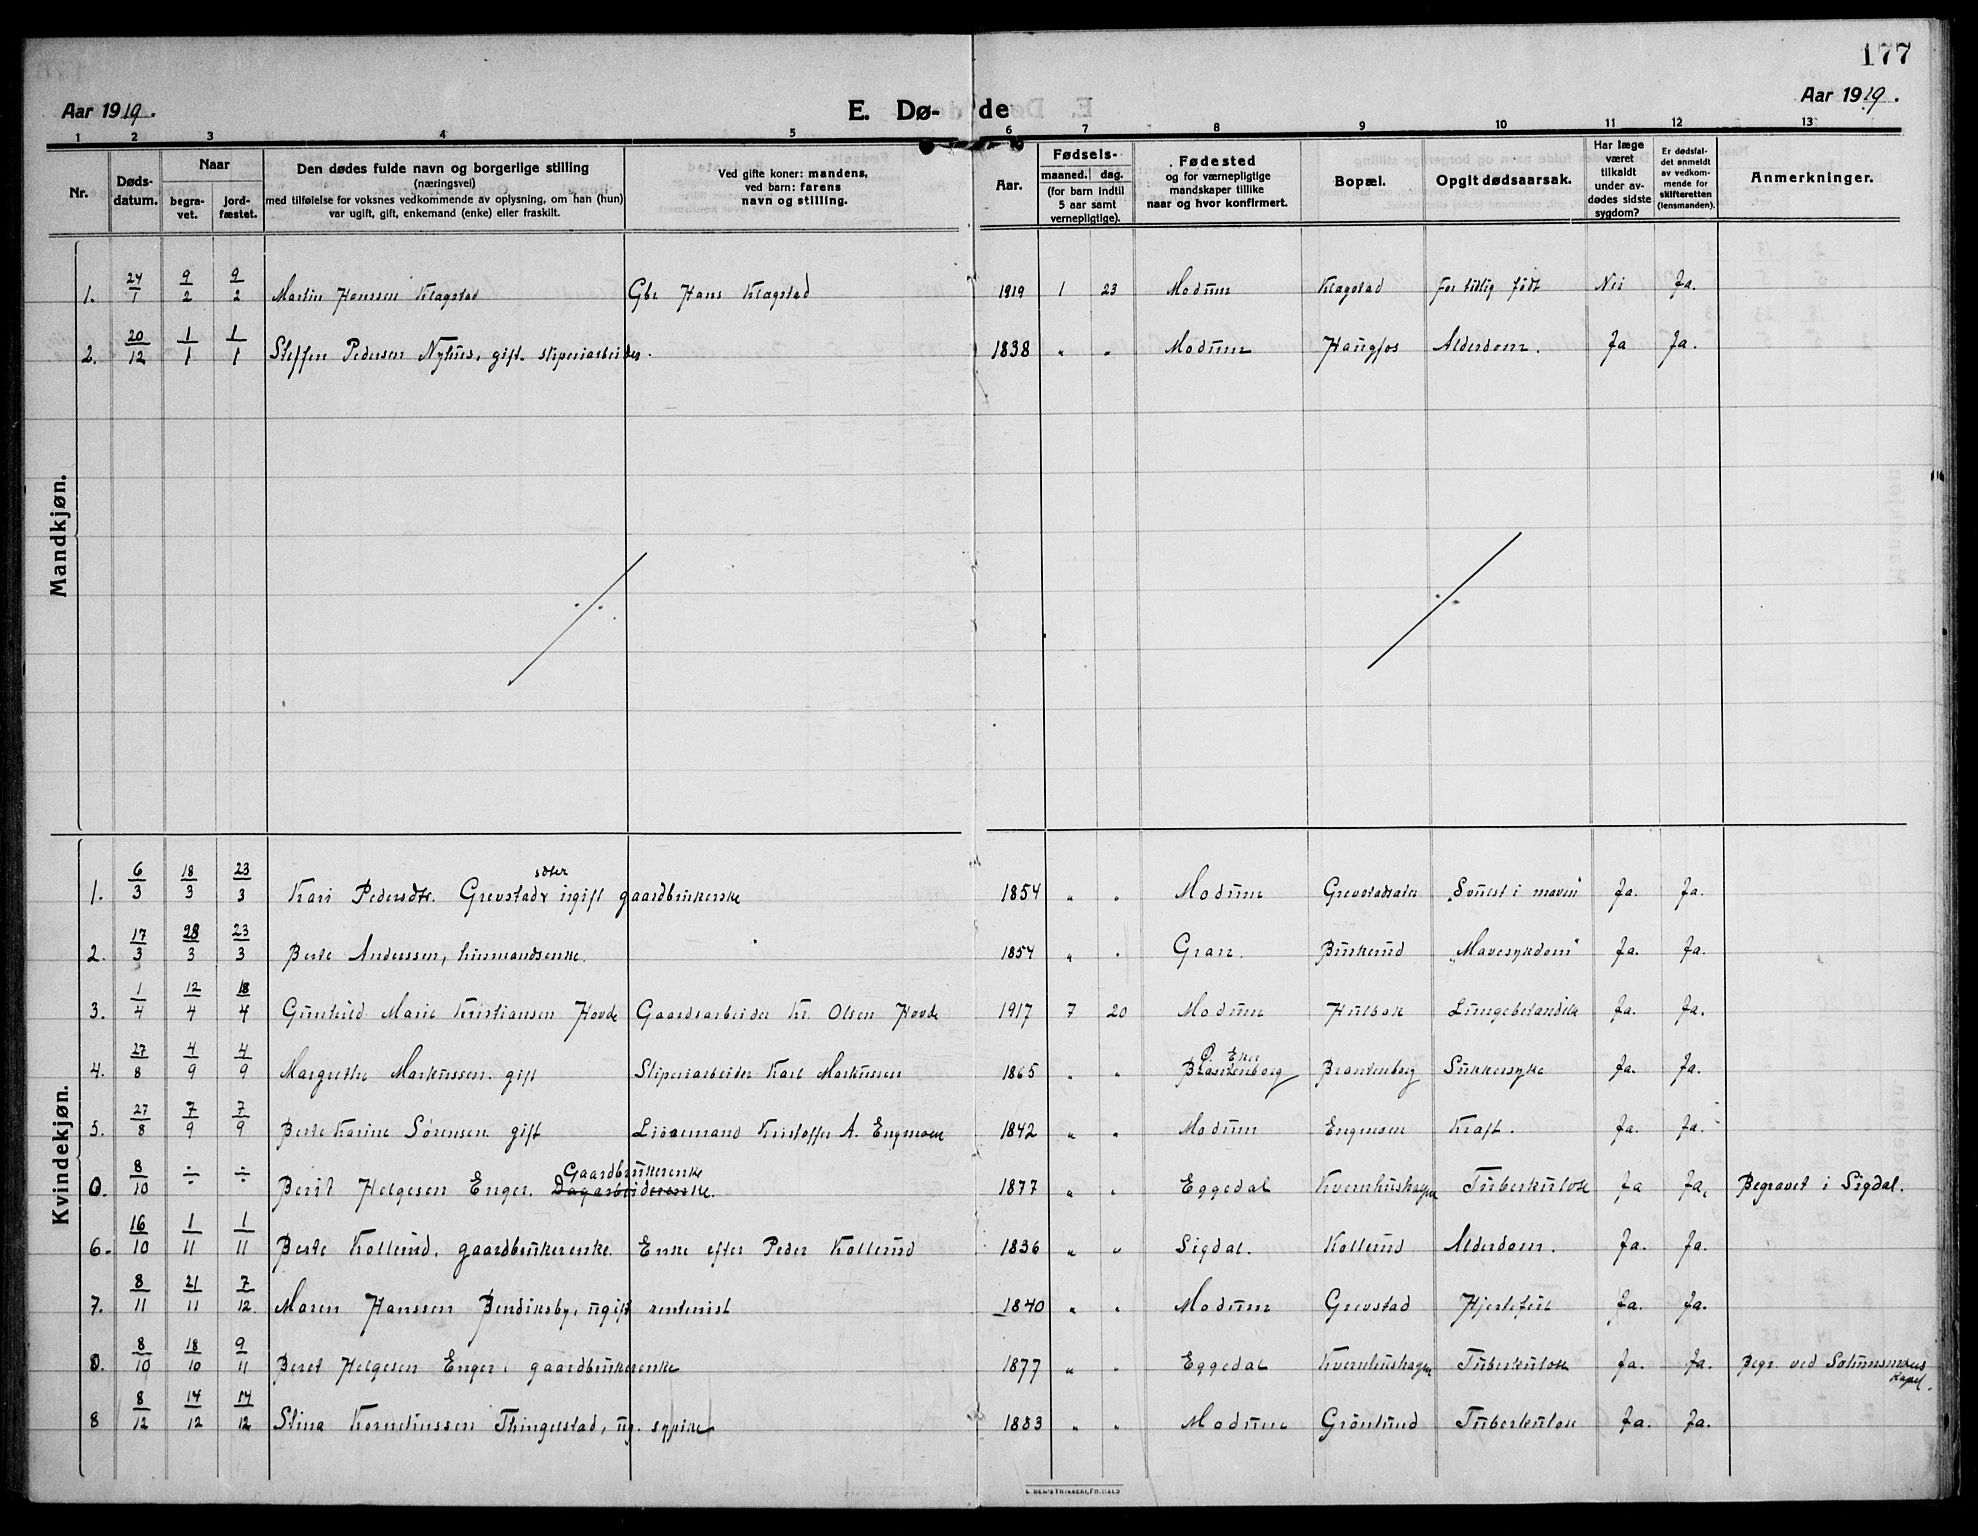 177
Aar 1919.
E. Dø- de
Aar 1919.
1 2 3 4 5 6 7 8 9 10 11 12 13
Nr.
Døds-
datum.
Naar
begra-
vet.
jord-
fæstet.
Den dødes fulde navn og borgerlige stilling
(næringsvei)
med tilføielse for voksnes vedkommende av oplysning, om han (hun)
var ugift, gift, enkemand (enke) eller fraskilt.
Ved gifte koner: mandens,
ved barn: farens
navn og stilling.
Aar.
Fødsels-
maaned. dag.
(for barn indtil
5 aar samt
vernepligtige).
Fødested
og for værnepligtige
mandskaper tillike
naar og hvor konfirmert.
Bopæl.
Opgit dødsaarsak.
Har læge
været
tilkaldt
under av-
dødes sidste
sygdom?
Er dødsfal-
det anmeldt
av vedkom-
mende for
skifteretten
(lensmanden).
Anmerkninger.
Mandkjøn.
1. 24/1 9/2 9/2 Martin Hanssen Klagstad Gbr Hans Klagstad 1919 1 23 Modum Klagstad For tidlig født Nei Ja.
2. 20/12 1/1 1/1 Steffen Pedersen Nyhus, gift sliperiarbeider. 1838 " " Modum Haugfos Alderdom. Ja Ja.
Kvindekjøn.
1. 6/3 18/3 23/3 Kari Pedersdtr. Grevstad sæter ugift gaardbrukerske 1854 " " Modum Grevstadsæter "Svulst i maven" Ja. Ja.
2. 17/3 28/3 23/3 Berte Anderssen, husmandsenke. " 1854 " " Gran. Buskerud "Mavesykdom" Ja. Ja.
3. 1/4 12/4 18/4 Gunhild Marie Kristiansen Hovde Gaardsarbeider Kr. Olsen Hovde 1917 7 20 Modum Hulbak Lungebetændelse Ja. Ja.
4. 27/8 4/9 4/9 Margrethe Markussen. gift Sliperiarbeider Karl Markussen 1865 " " Ø. Eker Brandenborg Brandenborg Sukkersyke Ja. Ja.
5. 27/8 7/9 7/9 Berte Karine Sørensen gift Kristoffer A. Engmoen 1842 " " Modum Engmoen Kræft. Ja. Ja.
0. 8/10 ÷ ÷ Berit Helgesen Enger. Gaardbrukerenke Dagarbeiderske. 1877 " " Eggedal Kvernhushagen Tuberkulose Ja Ja. Begravet i Sigdal.
6. 16/10 1/11 1/11 Berte Kollerud, gaardbrukerenke. Enke efter Peder Kollerud 1836 " " Sigdal. Kollerud Alderdom. Ja. Ja.
7. 8/11 21/11 7/12. Maren Hanssen Bendiksby, ugift rentenist 1840 " " Modum Grevstad Hjertefeil Ja. Ja.
0. 8/10 18/10 9/11 Beret Helgesen Enger, gaardbrukerenke 1877 " " Eggedal Kvernhushagen Tuberkulose Ja. Ja. Begr. ved Solumsmoens kapel.
8 8/12 14/12 14/12 Stina Korneliussen Thingelstad, ug. sypike 1883 " " Modum Grönlund Tuberkulose Ja. Ja.